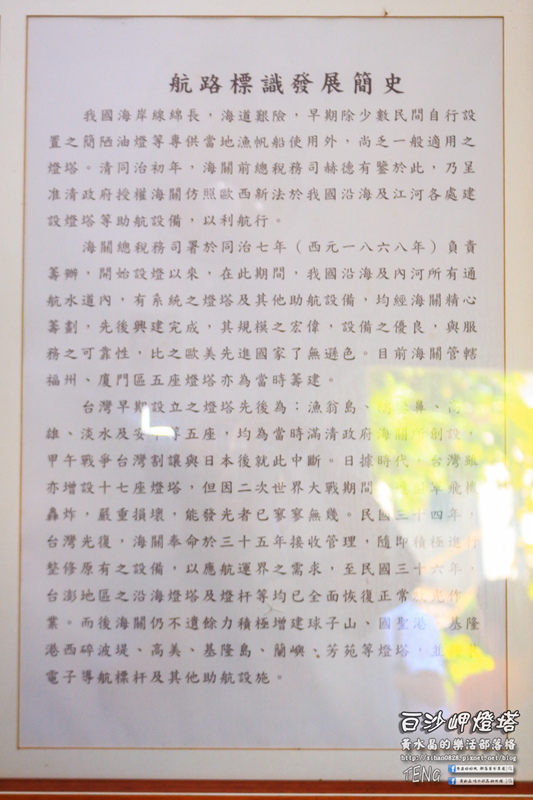 航路標識發展簡史
我國海岸線綿長，海道艱險，早期除少數民間自行設
置之簡陋油燈等專供當地漁帆船使用外，尚乏一般適用之
燈塔。清同治初年，海關前總稅務司赫德有鑒於此，乃呈
准清政府授權海關仿照歐西新法於我國沿海及江河各處建
設燈塔等助航設備，以利航行。
海關總稅務司署於同治七年（西元一八六八年）負責
籌辦，開始設燈以來，在此期間，我國沿海及內河所有通
航水道內，有系統之燈塔及其他助航設備，均經海關精心
籌劃，先後興建完成，其規模之宏偉，設備之優良，與服
務之可靠性，比之歐美先進國家了無遜色。目前海關管轄
福州、廈門區五座燈塔亦為當時籌建。
台灣早期設立之燈塔先後為：漁翁島、鼻、高
雄、淡水及安平等五座，均為當時滿清政府海關所創設，
甲午戰爭台灣割讓與日本後就此中斷。日據時代，台灣雖
亦增設十七座燈塔，但因二次世界大戰期間飛機
轟炸，嚴重損壞，能發光者已寥寥無幾。民國三十四年，
台灣光復，海關奉命於三十五年接收管理，隨即積極進行
整修原有之設備，以應航運界之需求，至民國三十六年，
台澎地區之沿海燈塔及燈杆等均已全面恢復正常作
業。而後海關仍不遺餘力積極增建球子山、國聖港、基隆
港西碎波堤、高美、基隆島、蘭嶼、芳苑等燈塔，
電子導航標杆及其他助航設施。
白沙岬燈塔
黃水晶的樂活部落格
http://sihan0828.pixnet.net/blog
TENG